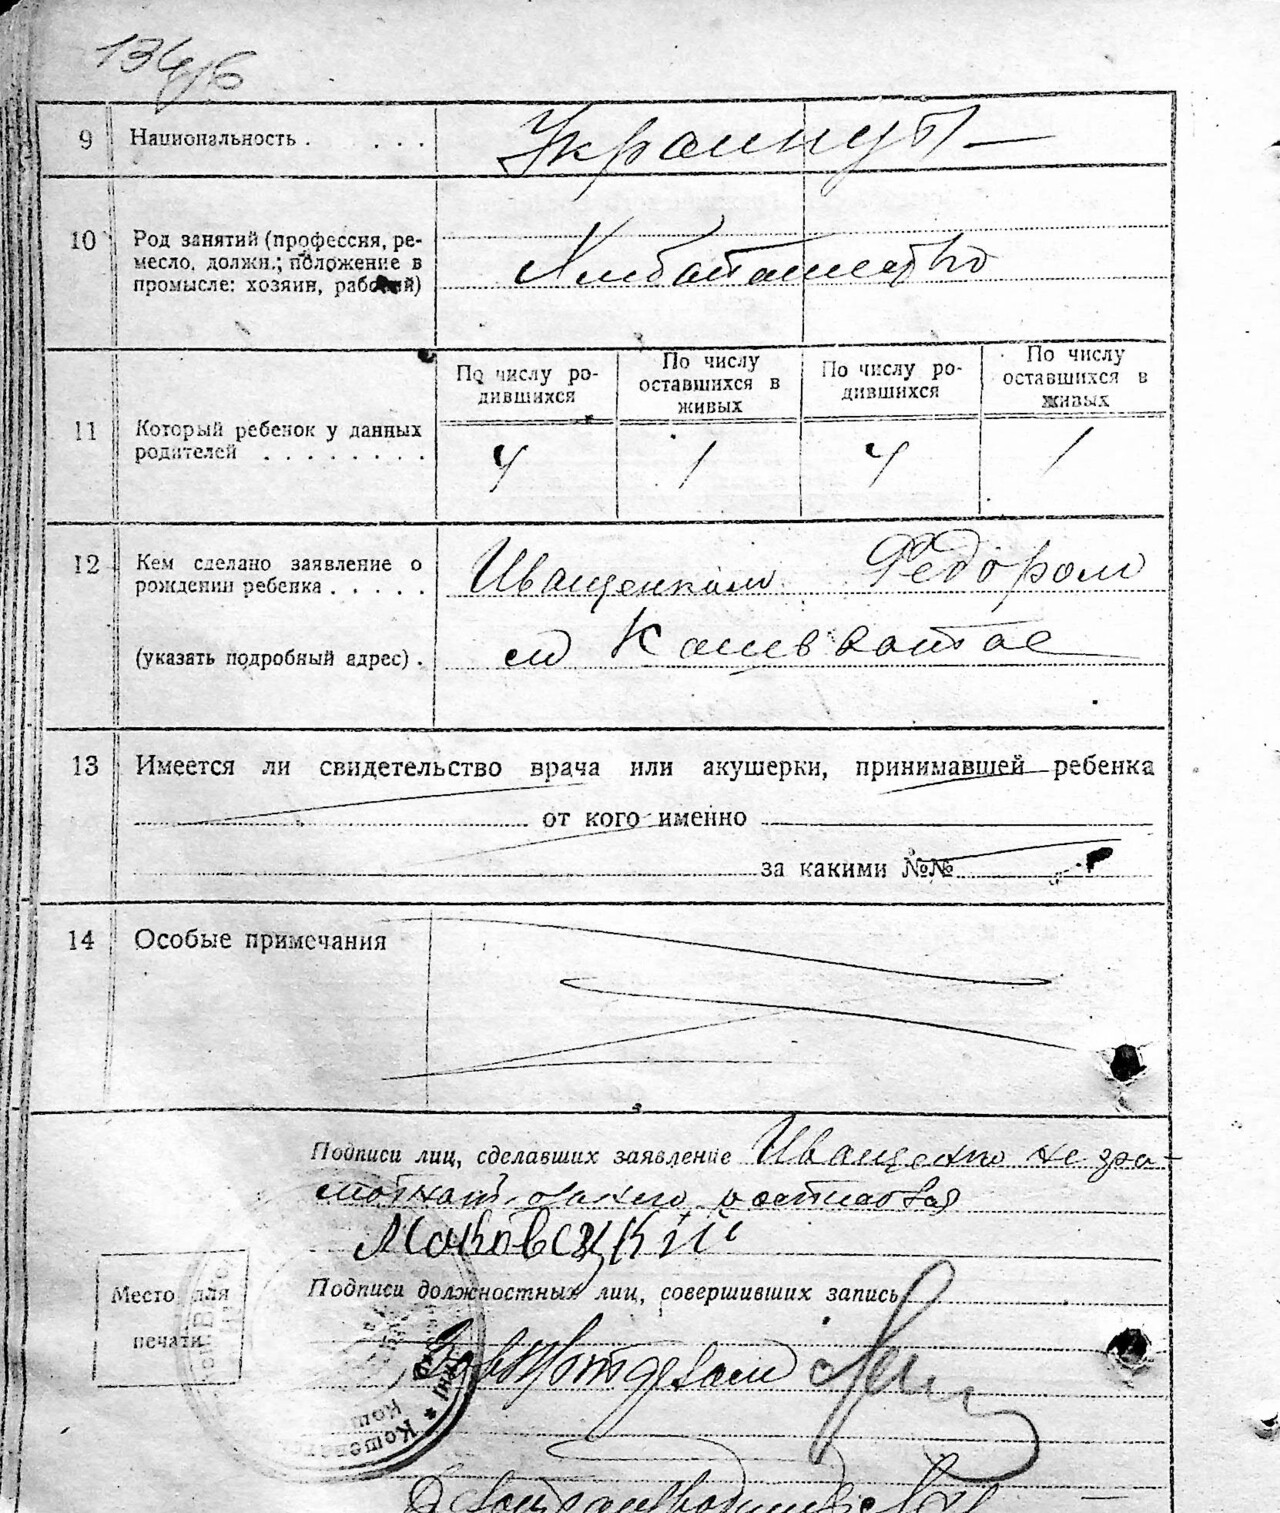 134/6
9 Национальность . . . .
Украинцы
10 Род занятий (профессия, ре-
месло, должн.; положение в
промысле: хозяин, рабочий)
Хлибопашество
По числу ро-
дившихся
По числу
оставшихся в
живых
По числу ро-
дившихся
По числу
оставшихся в
живых
11 Который ребенок у данных
родителей . . . . . . . .
4 1 4 1
12 Кем сделано заявление о
рождении ребенка . . . . .
Иващенком Федором
(указать подробный адрес) .
м
13 Имеется ли свидетельство врача или акушерки, принимавшей ребенка
от кого именно
за какими №№
14 Особые примечания
Подписи лиц, сделавших заявление Иващенко не гра-
мотный за него росписався
Маковецкий
Место для
печати
Подписи должностных лиц, совершивших запись